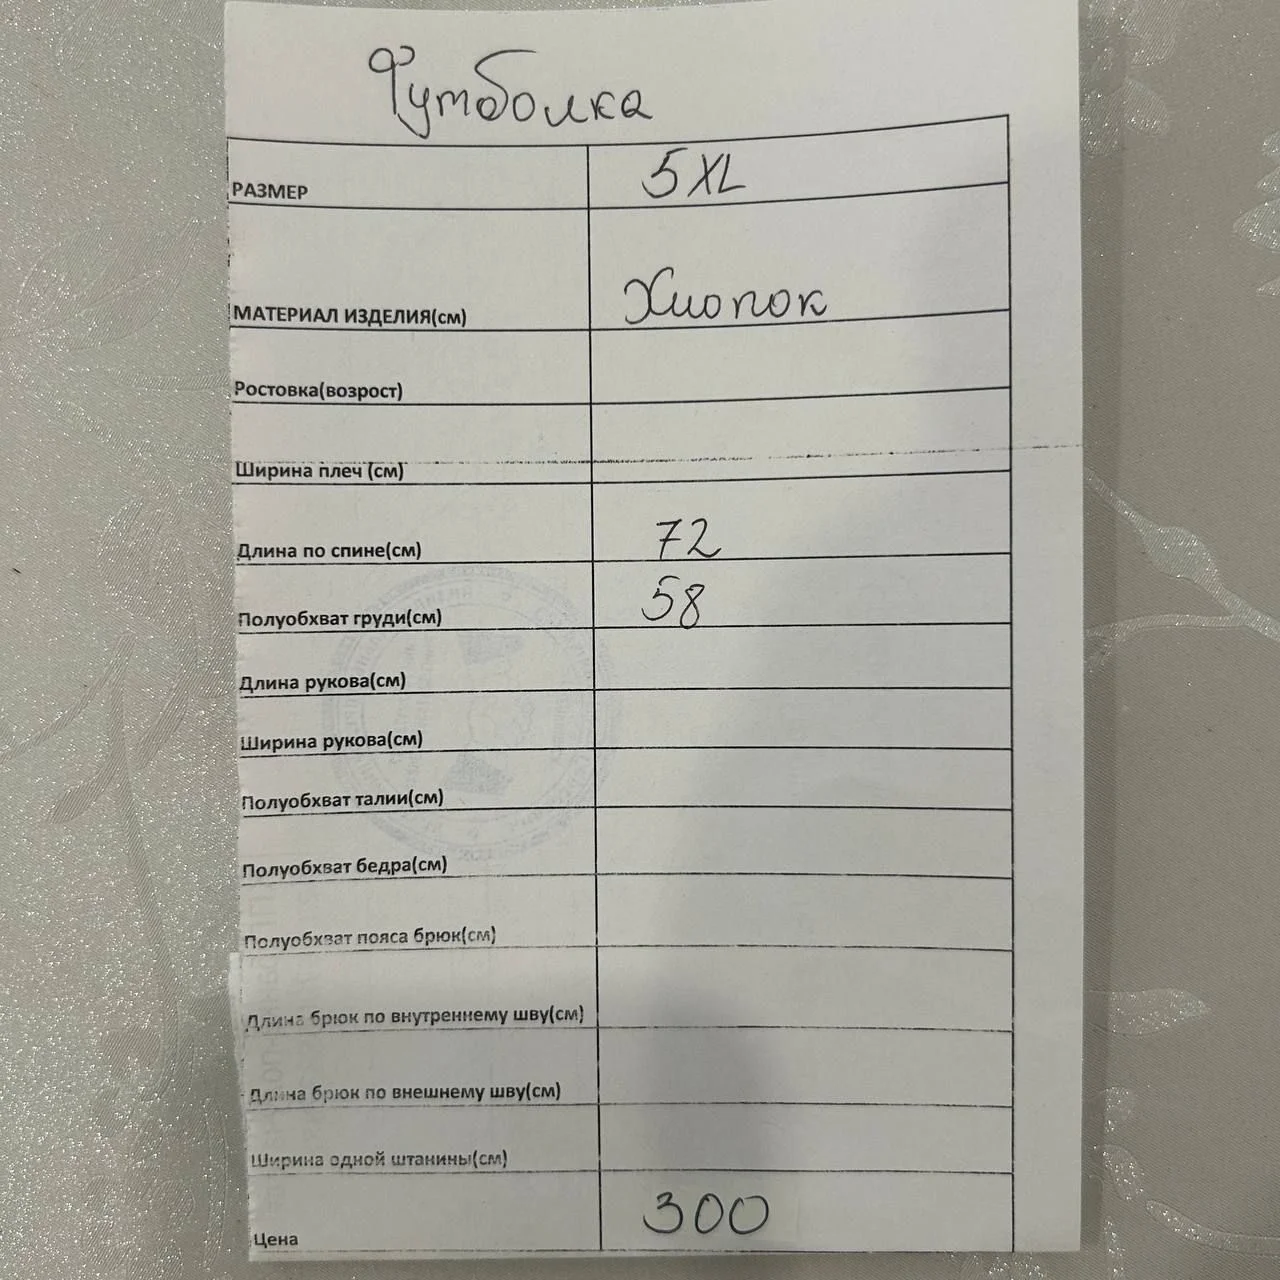 Футболка
РАЗМЕР 5XL
МАТЕРИАЛ ИЗДЕЛИЯ(см) Хлопок
Ростовка(возрост)
Ширина плеч (см)
Длина по спине(см) 72
Полуобхват груди(см) 58
Длина рукова(см)
Ширина рукова(см)
Полуобхват талии(см)
Полуобхват бедра(см)
Полуобхват пояса брюк(см)
Длина брюк по внутреннему шву(см)
Длина брюк по внешнему шву(см)
Ширина одной штанины(см)
Цена 300